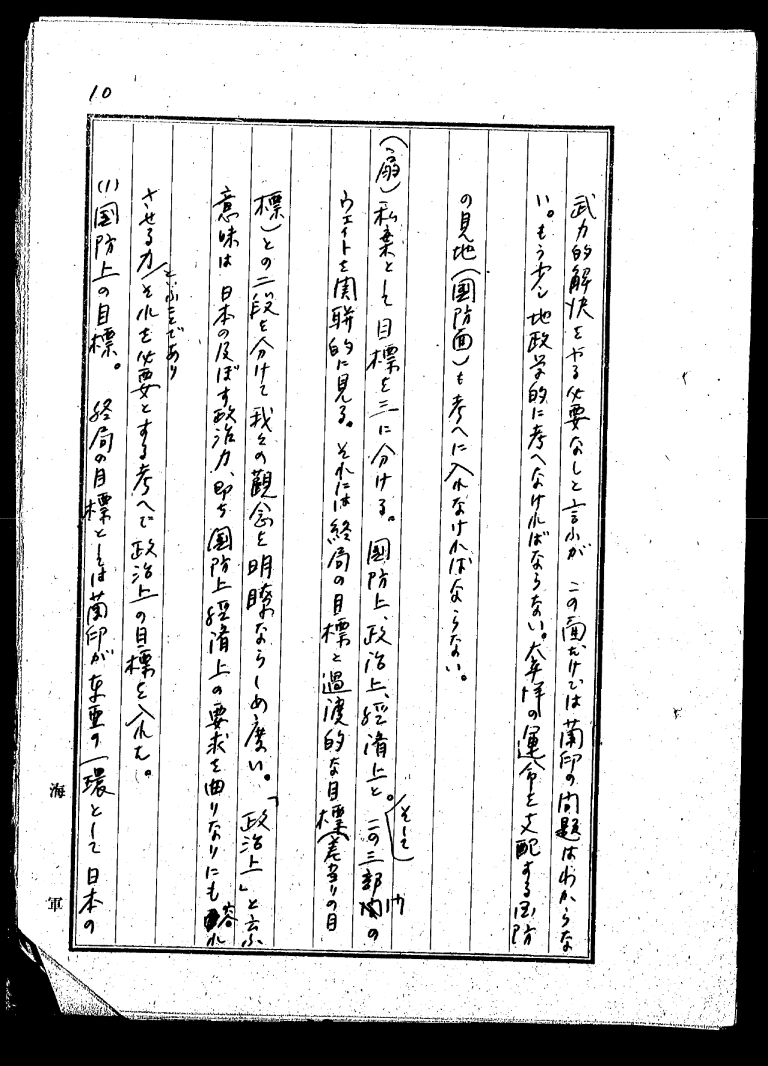 10
武力的解決をやる必要なしと言ふが この面だけでは蘭印の問題はわからな
い。もう少し地政学的に考へなければならない。太平洋の運命を支配する国防
の見地(国防面)も考へに入れなければならない。
(扇)私案として目標を三に分ける。国防上、政治上、経済上と。そしてこの三部門の
ウェイトを関聯的に見る。それには終局の目標と過渡的な目標(差当りの目
標)との二段を分けて我々の観念を明瞭ならしめ度い。「政治上」と云ふ
意味は 日本の及ぼす政治力、即ち国防上経済上の要求を曲りなりにも容れ
させる力といふことであり それを必要とする考へで政治上の目標を入れた。
(1)国防上の目標。 終局の目標としては蘭印が東亜の一環として日本の
海軍